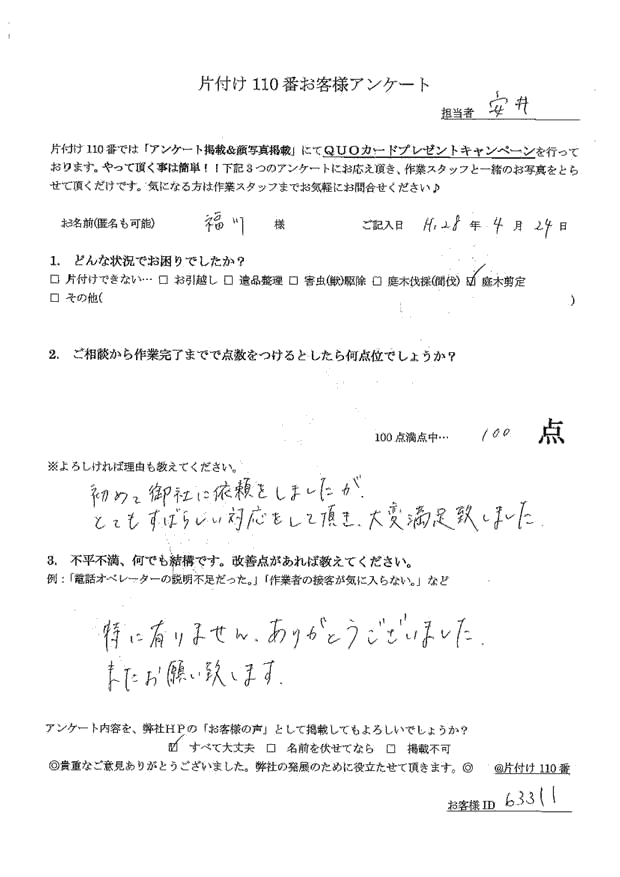 片付け110番お客様アンケート
担当者 安井
片付け110番では「アンケート掲載&顔写真掲載」にてQUOカードプレゼントキャンペーンを行って
おります。やって頂く事は簡単!!下記3つのアンケートにお応え頂き、作業スタッフと一緒のお写真をとら
せて頂くだけです。気になる方は作業スタッフまでお気軽にお問合せください♪
お名前(匿名も可能) 福川 様 ご記入日 H.28 年 4 月 24 日
1. どんな状況でお困りでしたか?
□ 片付けできない… □ お引越し □ 遺品整理 □ 害虫(獣)駆除 □ 庭木伐採(間伐) ☑ 庭木剪定
□ その他( )
2. ご相談から作業完了までで点数をつけるとしたら何点位でしょうか?
100点満点中… 100 点
※よろしければ理由も教えてください。
初めて御社に依頼をしましたが、
とてもすばらしい対応をして頂き、大変満足致しました。
3. 不平不満、何でも結構です。改善点があれば教えてください。
例:「電話オペレーターの説明不足だった。」「作業者の接客が気に入らない。」など
特に有りません、ありがとうございました。
またお願い致します。
アンケート内容を、弊社HPの「お客様の声」として掲載してもよろしいでしょうか?
☑ すべて大丈夫 □ 名前を伏せてなら □ 掲載不可
◎貴重なご意見ありがとうございました。弊社の発展のために役立たせて頂きます。◎ @片付け110番
お客様ID 63311